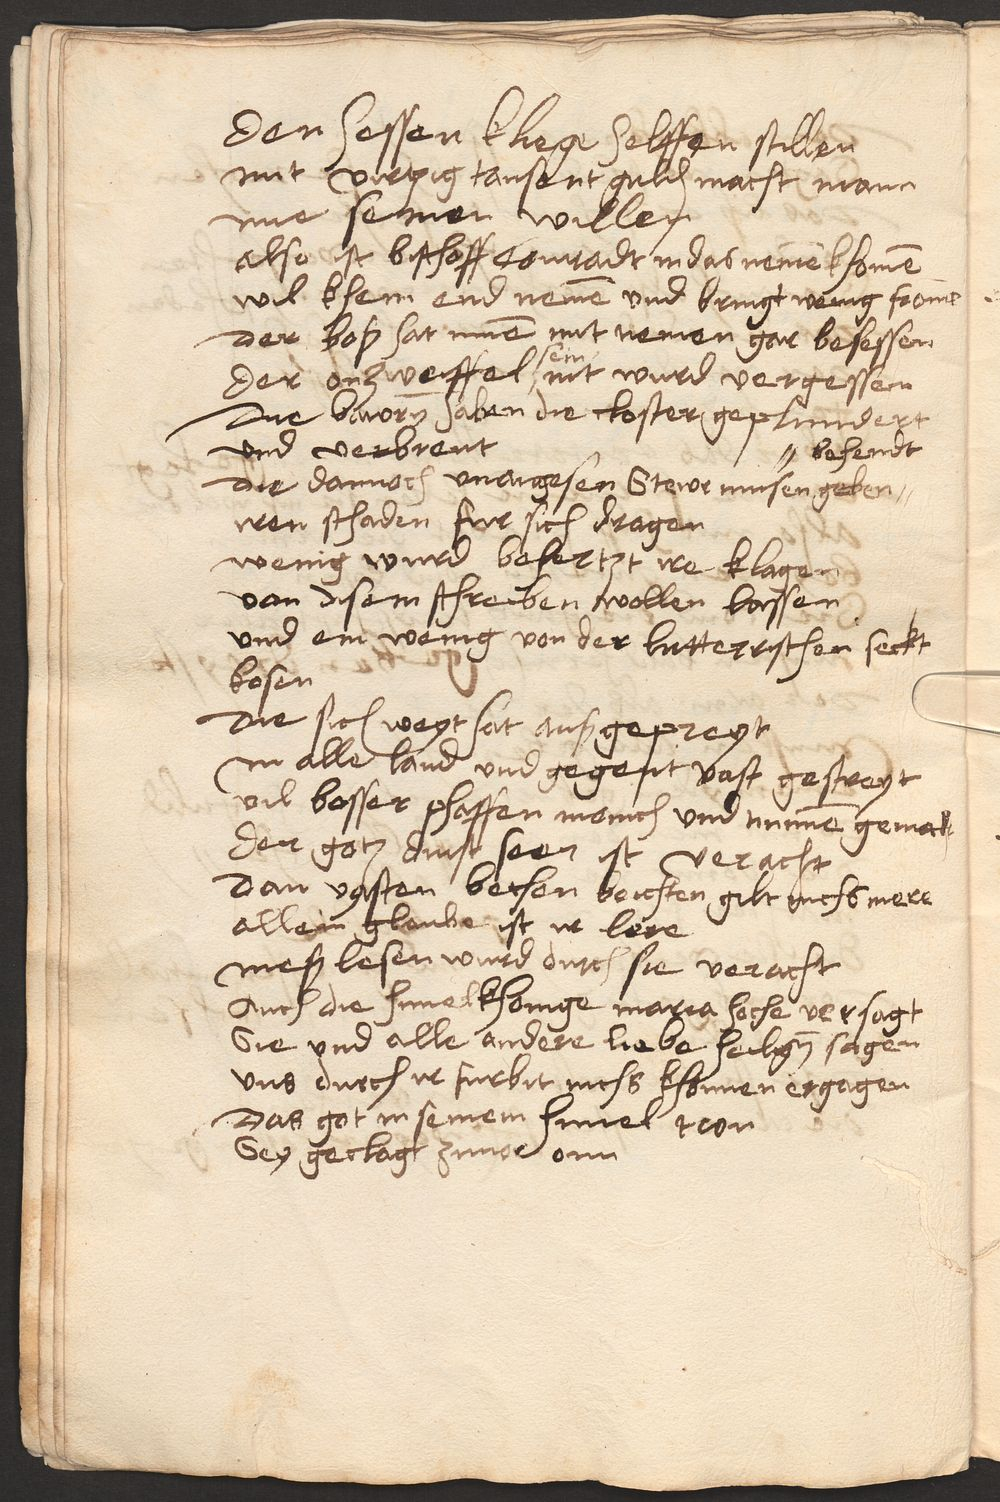 den hessen khrieg helffen stillen
mit virtzig tausent guld macht mann
ime seinen willen
also ist bischoff Conradt in das nemē khomē
wil khein end nemē und bringt wenig fromē
der boß hat inn mit nemen gar besessen
der on zweiffel sein nit wurd vergessen
Die bawrn haben die closter geplundert
und verbrent
// behendt
die dannoch unangesehen Stewr musen geben //
iren schaden fur sich dragen
wenig wurd behertzt ire klagen
von disem schreiben wollen lassen
und ein wenig von der lutterischen seckt
bosen
die sich weyt hat außgepreyt
in alle land und gegent vast gestreyt
vil bosser pfaffen monich und nunnē gemacht
der gotz dinst seer ist veracht
Dan vasten bethen beichten gilt nichs mere
allein glaube ist ir lere
meß lesen wurd durch sie veracht
Auch die himel khonige maria hoche versagt
Sie und alle andere liebe heilgn sagen
uns durch ir furbit nichs khonnen ergagen
Das got in seinem himel tron
Sey geclagt zuvor onn